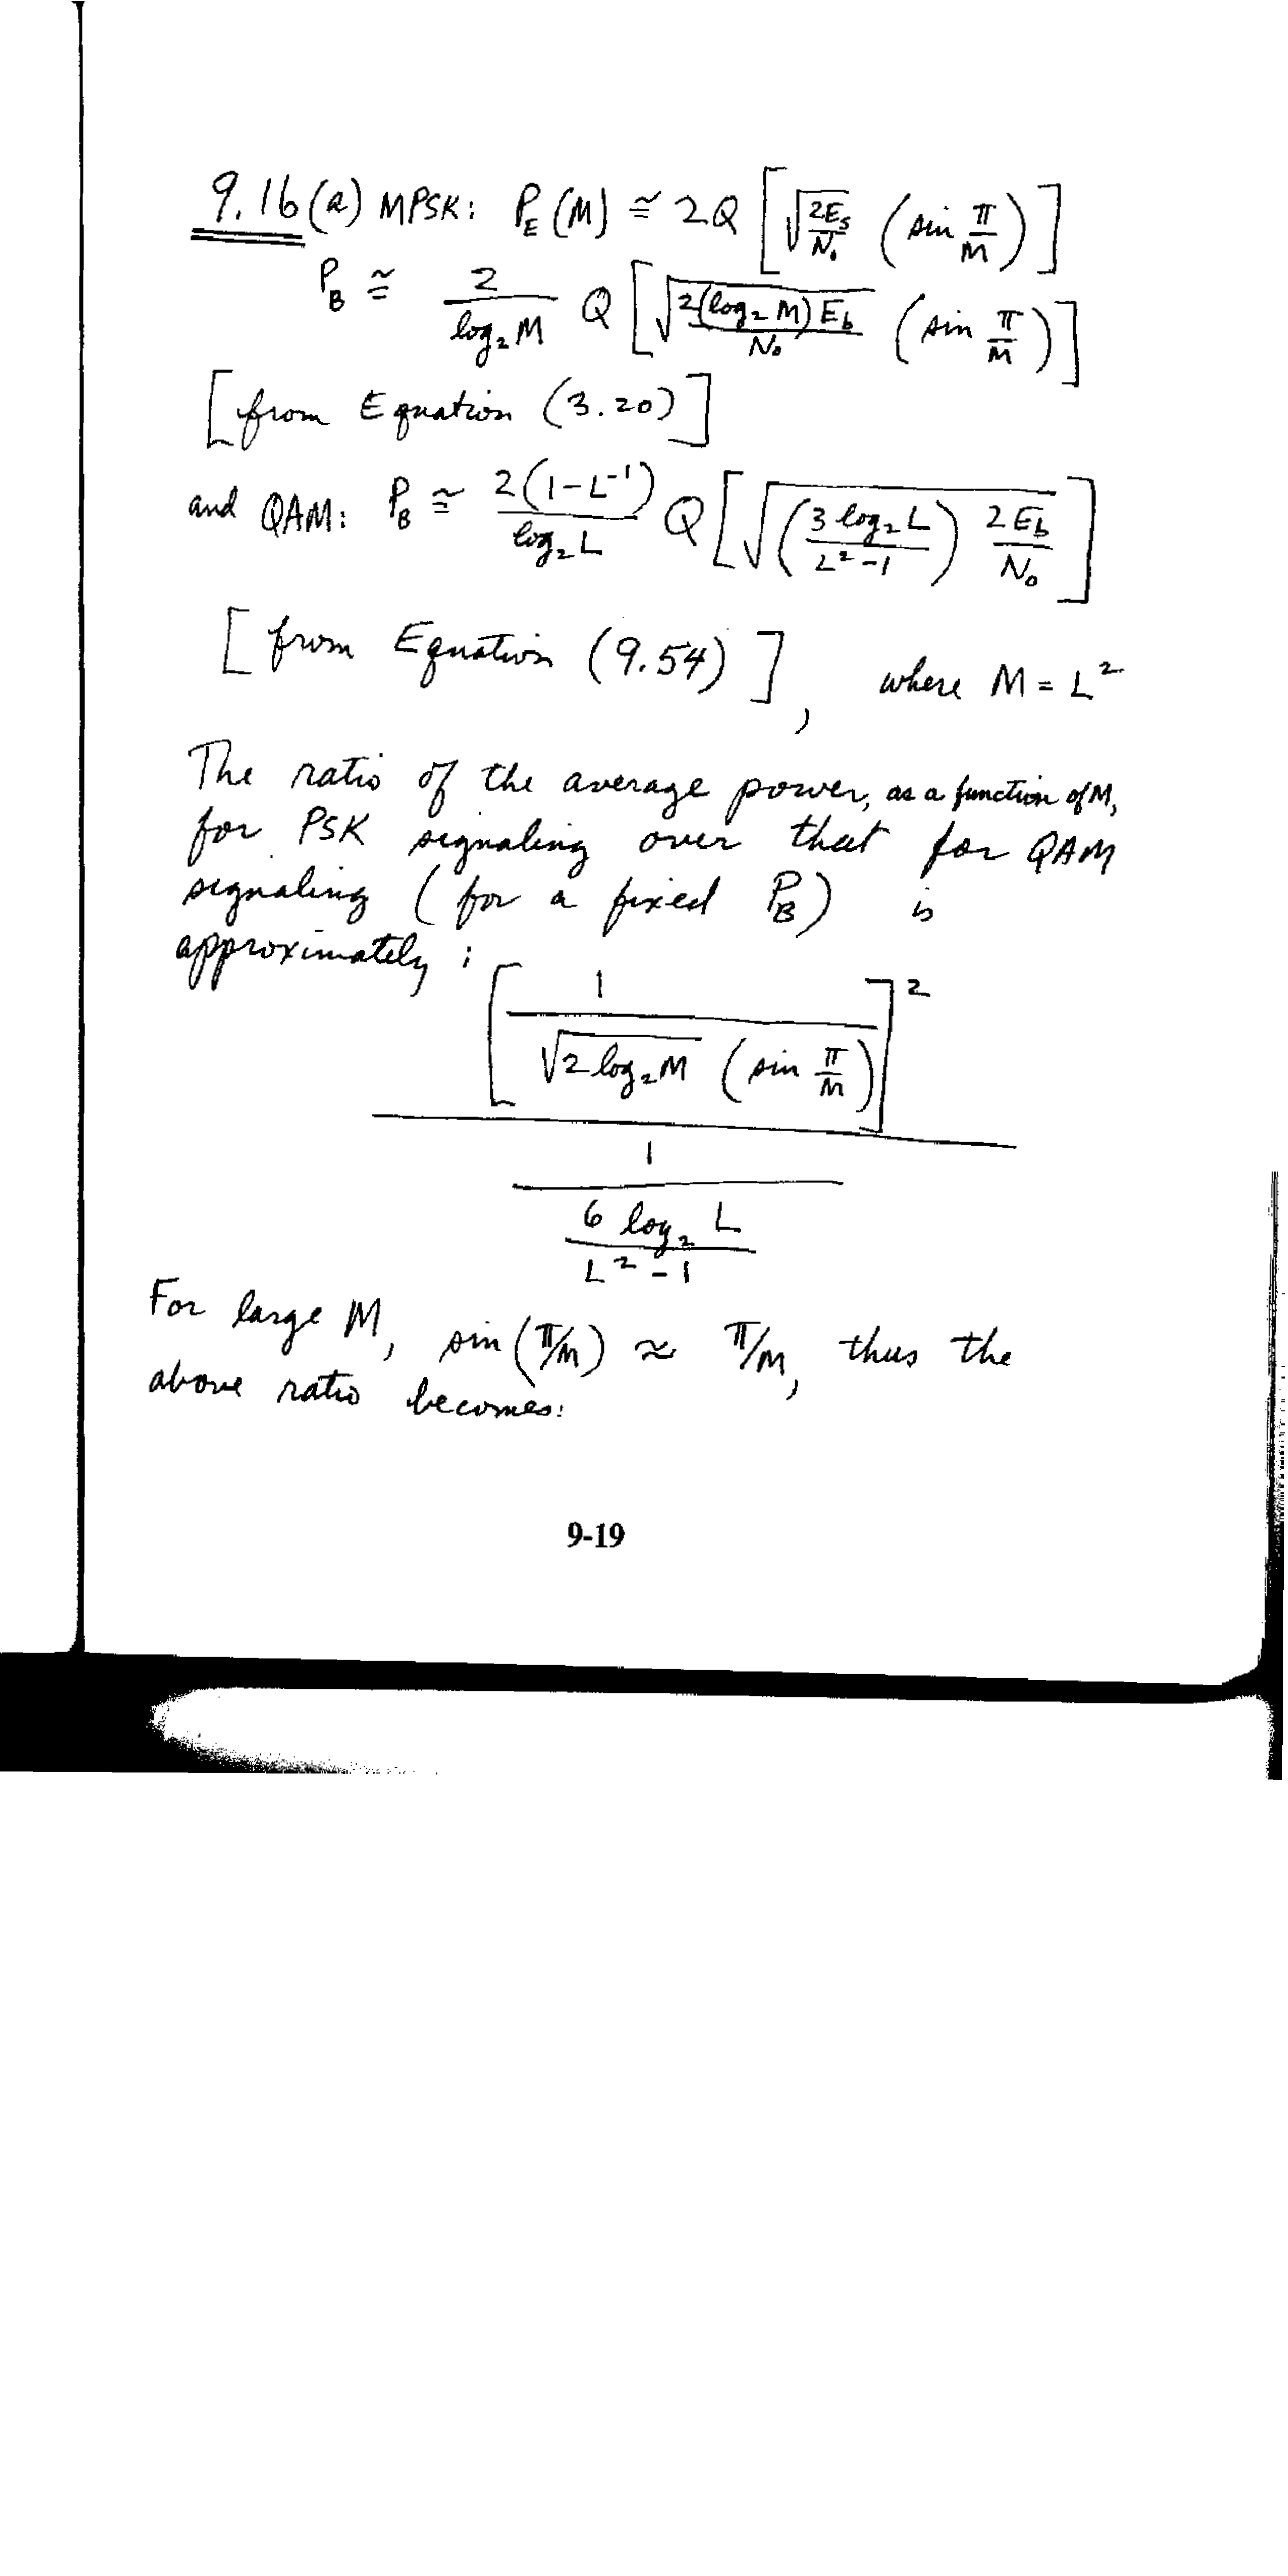 9.16 (a) MPSK: P_E (M) ≅ 2Q [ √(2E_s/N_0) (sin π/M) ]
P_B ≅ 2/(log_2 M) Q [ √(2(log_2 M) E_b/N_0) (sin π/M) ]
[from Equation (3.20)]
and QAM: P_B ≅ 2(1-L^-1)/(log_2 L) Q [ √((3 log_2 L)/(L^2-1)) 2E_b/N_0) ]
[from Equation (9.54)], where M = L^2
The ratio of the average power, as a function of M,
for PSK signaling over that for QAM
signaling (for a fixed P_B) is
approximately:
[ 1 / (√(2 log_2 M) (sin π/M)) ]^2
1
6 log_2 L
L^2 - 1
For large M, sin(π/M) ≈ π/M, thus the
above ratio becomes:
9-19